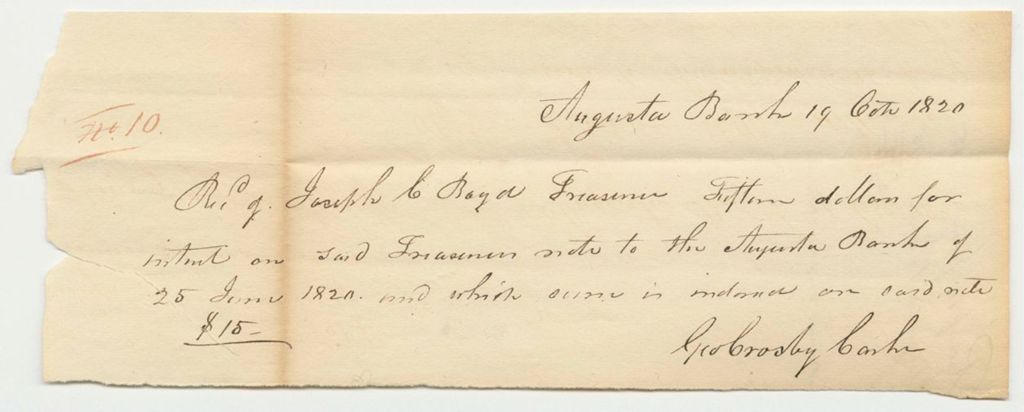 No. 10.
Augusta Bank 19 Octr 1820
Recd of Joseph C Boyd Treasurer Fifteen dollars for
intrest on said Treasurers note to the Augusta Bank of
25 June 1820. and which sum is indorsed on said note
$15-
Geo Crosby Cashr